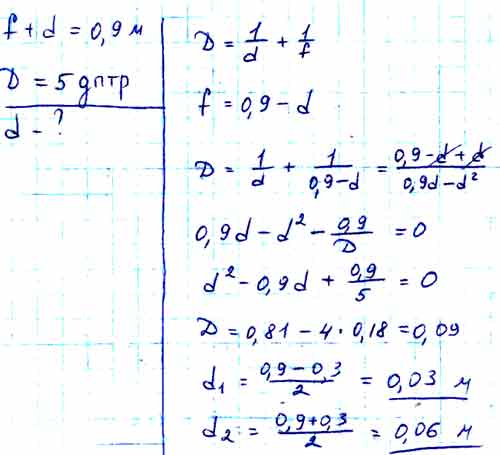 f + d = 0,9 м
D = 5 дптр
d - ?
D = 1/d + 1/f
f = 0,9 - d
D = 1/d + 1/(0,9-d) = (0,9 - d + d)/(0,9d - d²)
0,9d - d² - 0,9/D = 0
d² - 0,9d + 0,9/5 = 0
D = 0,81 - 4 · 0,18 = 0,09
d₁ = (0,9 - 0,3)/2 = 0,03 м
d₂ = (0,9+0,3)/2 = 0,06 м